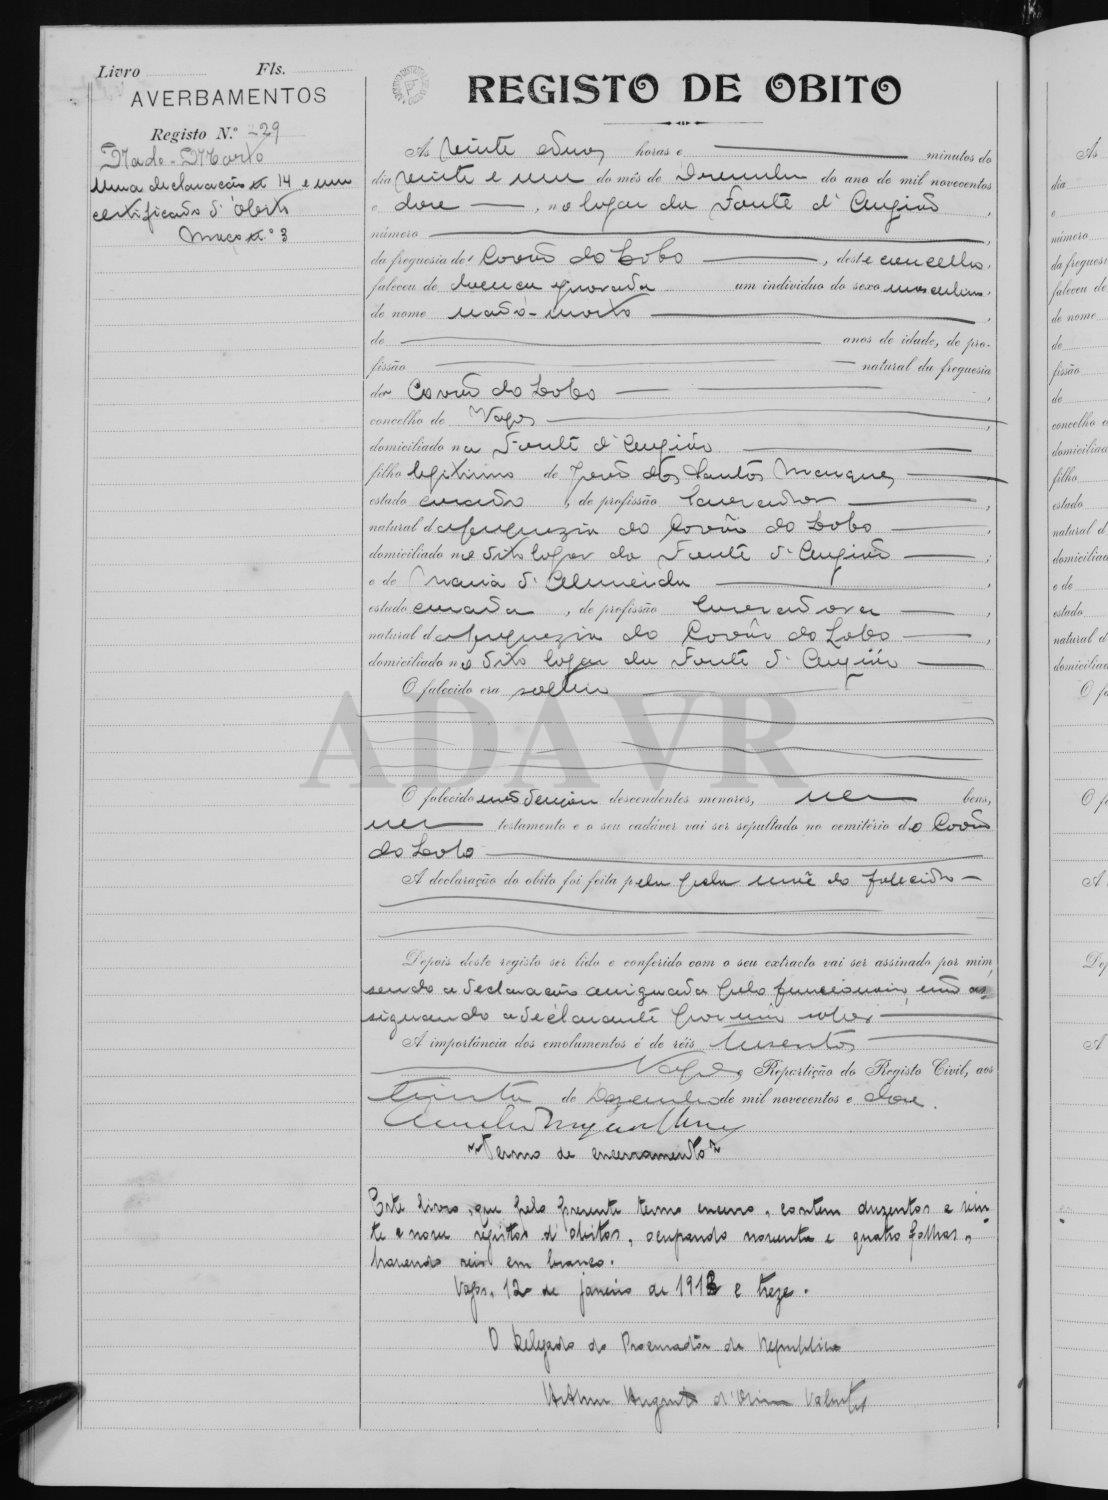 Livro Fls.
AVERBAMENTOS
Registo N.º 229
Nado-Morto
Uma declaração nº 14 e um
certificado d'óbito
Maço nº 3
REGISTO DE OBITO
Às vinte e duas horas e minutos do
dia vinte e um do mês de Dezembro do ano de mil novecentos
e doze, no logar da Fonte d'Angião
número
da freguesia de Covão do Lobo, deste concelho,
faleceu de doença ignorada um individuo do sexo masculino,
de nome nado-morto
de anos de idade, de pro-
fissão natural da freguesia
de Covão do Lobo
concelho de Vagos
domiciliado na Fonte d'Angião
filho legitimo de João dos Santos Marques
estado casado, de profissão lavrador
natural da freguezia do Covão do Lobo
domiciliado no dito logar da Fonte d'Angião
e de Maria d'Almeida
estado casada, de profissão lavradora
natural da freguezia do Covão do Lobo
domiciliado no dito logar da Fonte d'Angião
O falecido era solteiro
ADAVR
O falecido não deixou descendentes menores, nem bens,
nem testamento e o seu cadáver vai ser sepultado no cemitério do Covão
do Lobo
A declaração do obito foi feita pela mãe do falecido
Depois deste registo ser lido e conferido com o seu extracto vai ser assinado por mim,
sendo a declaração assignada pelo funcionario, não as-
signando a declarante por não saber
A importância dos emolumentos é de réis duzentos
Vagos, Repartição do Registo Civil, aos
trinta de Dezembro de mil novecentos e doze.
"Termo de encerramento"
Este livro, que pelo presente termo encerro, contem duzentos e vin-
te e nove registos d'obitos, ocupando noventa e quatro folhas,
havendo seis em branco.
Vagos, 12 de janeiro de 1913 e treze.
O Delegado do Procurador da Republica